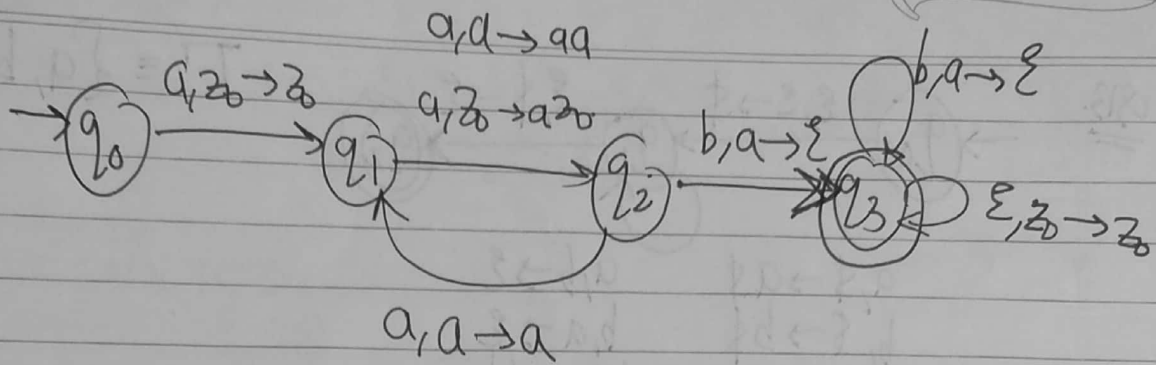 a,a→aa
a,z₀→z₀
a,z₀→az₀
b,a→ε
b,a→ε
q₀
q₁
q₂
q₃
ε,z₀→z₀
a,a→a